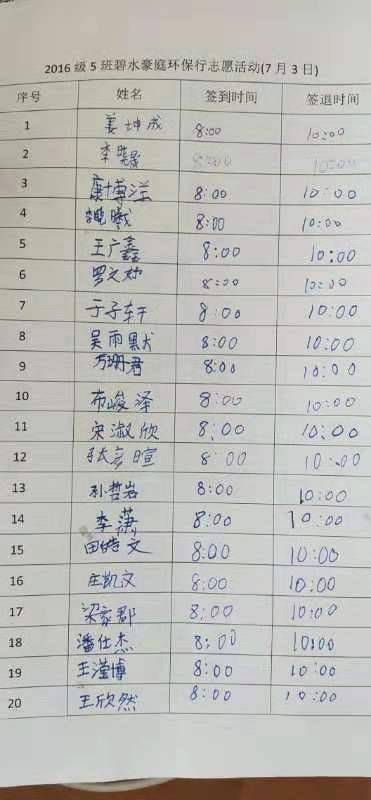 2016 级 5 班碧水豪庭环保行志愿活动(7 月 3 日)
序号 姓名 签到时间 签退时间
1 姜坤成 8:00 10:00
2 李 8:00 10:00
3 康博洋 8:00 10:00
4 魏曦 8:00 10:00
5 王广鑫 8:00 10:00
6 罗文 8:00 10:00
7 于子轩 8:00 10:00
8 吴雨默 8:00 10:00
9 方珊君 8:00 10:00
10 布峻泽 8:00 10:00
11 宋淑欣 8:00 10:00
12 张彦暄 8:00 10:00
13 孙哲岩 8:00 10:00
14 李潇 8:00 10:00
15 田皓文 8:00 10:00
16 庄凯文 8:00 10:00
17 梁家郡 8:00 10:00
18 潘仕杰 8:00 10:00
19 王滢博 8:00 10:00
20 王欣然 8:00 10:00